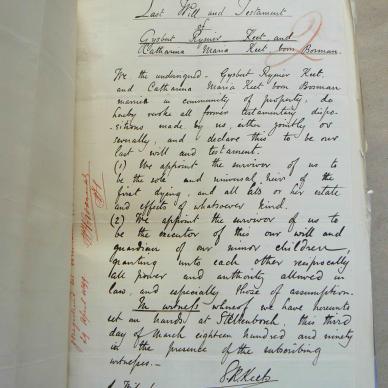 Last Will and Testament
of
Gysbert Rymer Keet and
Catharina Maria Keet born Bosman.
2
We the undersigned. Gysbert Rymer Keet
and Catharina Maria Keet born Bosman
married in community of property, do
hereby revoke all former testamentary dispo-
sitions made by us either jointly or
severally, and declare this to be our
last will and testament.
(1) We appoint the survivor of us to
be the sole and universal heir of the
first dying, and all his or her estate
and effects of whatsoever kind.
(2) We appoint the survivor of us to
be the executor of this our will and
guardian of our minor children,
granting unto each other reciprocally
all power and authority allowed in
law, and especially those of assumption.
In witness whereof we have hereunto
set our hands at Stellenbosch, this third
day of March eighteen hundred and ninety
in the presence of the subscribing
witnesses.
G R Keet
April 1898